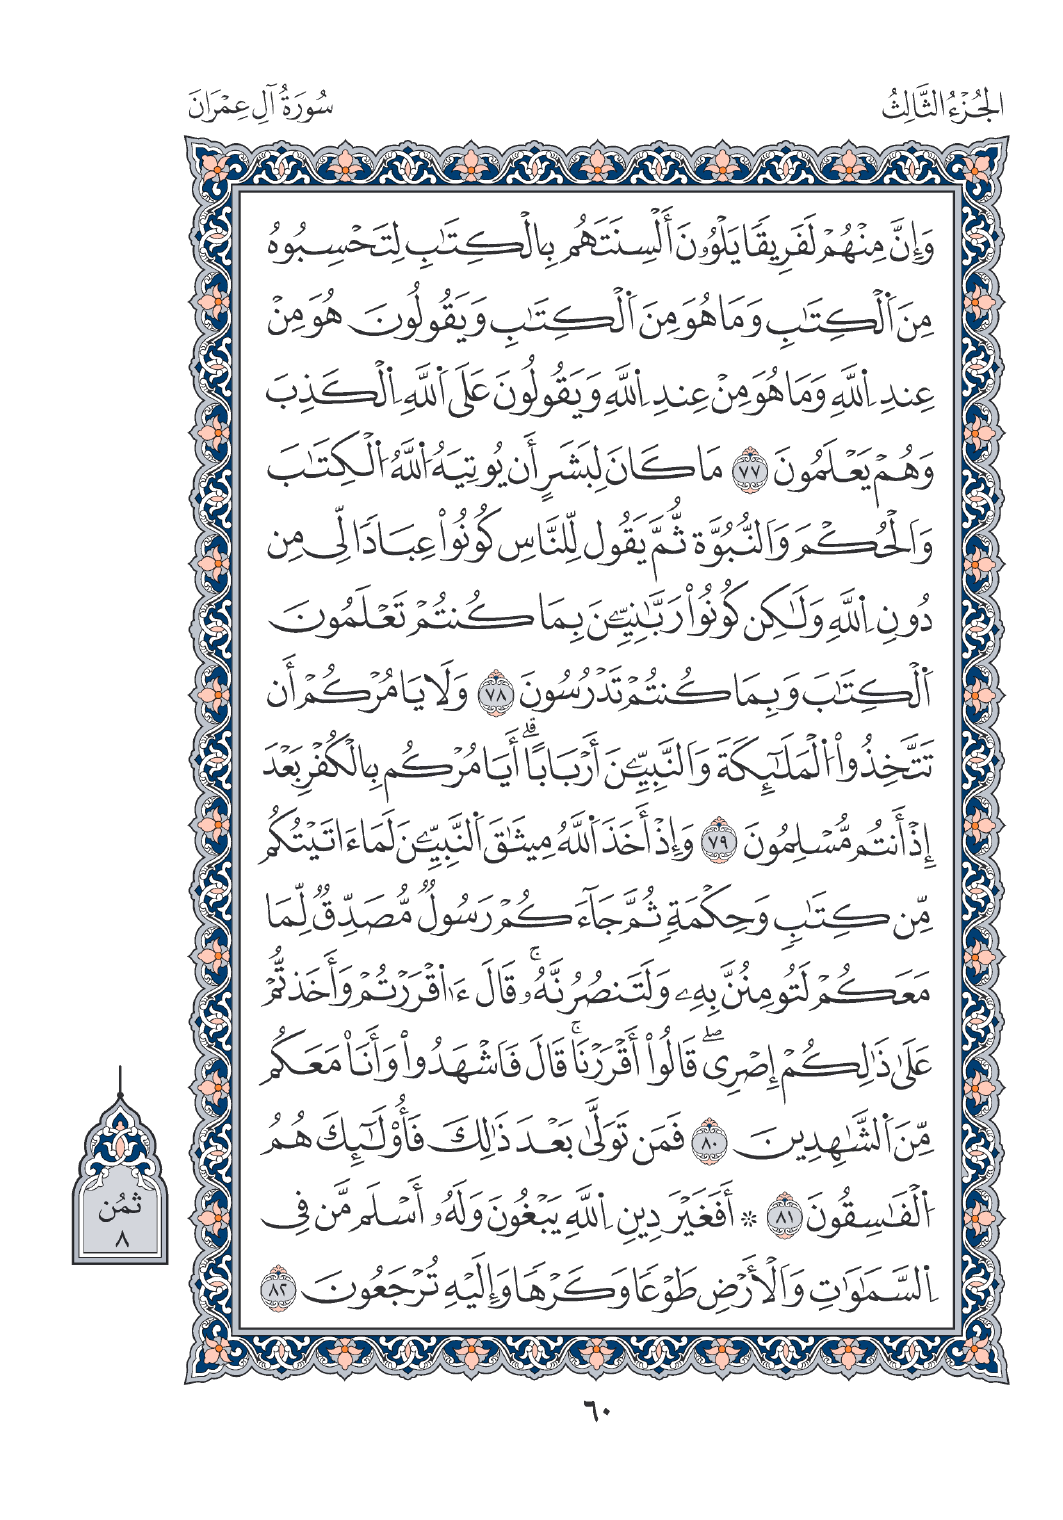 الجُزْءُ الثَّالِثُ
سُورَةُ آلِ عِمْرَانَ
وَإِنَّ مِنْهُمْ لَفَرِيقٗا يَلْوُۥنَ أَلْسِنَتَهُم بِالْكِتَٰبِ لِتَحْسِبُوهُ
مِنَ اَ۬لْكِتَٰبِ وَمَا هُوَ مِنَ اَ۬لْكِتَٰبِ وَيَقُولُونَ هُوَ مِنْ
عِندِ اِ۬للَّهِ وَمَا هُوَ مِنْ عِندِ اِ۬للَّهِ وَيَقُولُونَ عَلَى اَ۬للَّهِ اِ۬لْكَذِبَ
وَهُمْ يَعْلَمُونَ ٧٧ مَا كَانَ لِبَشَرٍ أَن يُوتِيَهُ اُ۬للَّهُ اُ۬لْكِتَٰبَ
وَالْحُكْمَ وَالنُّبُوَّة ثُّمَّ يَقُول لِّلنَّاسِ كُونُواْ عِبَادٗا لِّے مِن
دُونِ اِ۬للَّهِ وَلَٰكِن كُونُواْ رَبَّٰنِيِّۦنَ بِمَا كُنتُمْ تَعْلَمُونَ
اَ۬لْكِتَٰبَ وَبِمَا كُنتُمْ تَدْرُسُونَ ٧٨ وَلَا يَامُرْكُمْ أَن
تَتَّخِذُواْ اُ۬لْمَلَٰٓئِكَةَ وَالنَّبِيِّۦنَ أَرْبَاباًۗ أَيَامُرْكُم بِالْكُفْرِ بَعْدَ
إِذْ أَنتُم مُّسْلِمُونَ ٧٩ وَإِذْ أَخَذَ اَ۬للَّهُ مِيثَٰقَ اَ۬لنَّبِيِّۦنَ لَمَا ءَاتَيْتُكُم
مِّن كِتَٰبٖ وَحِكْمَةٖ ثُمَّ جَآءَكُمْ رَسُولٞ مُّصَدِّقٞ لِّمَا
مَعَكُمْ لَتُومِنُنَّ بِهِۦ وَلَتَنصُرُنَّهُۥۚ قَالَ ءَا۬قْرَرْتُمْ وَأَخَذتُّمْ
عَلَىٰ ذَٰلِكُمْ إِصْرِےۖ قَالُواْ أَقْرَرْنَاۚ قَالَ فَاشْهَدُواْ وَأَنَا۠ مَعَكُم
مِّنَ اَ۬لشَّٰهِدِينَ ٨٠ فَمَن تَوَلَّىٰ بَعْدَ ذَٰلِكَ فَأُوْلَٰٓئِكَ هُمُ
اُ۬لْفَٰسِقُونَ ٨١ ۞ أَفَغَيْرَ دِينِ اِ۬للَّهِ يَبْغُونَ وَلَهُۥ أَسْلَم مَّن فِے
اِ۬لسَّمَٰوَٰتِ وَالْأَرْضِ طَوْعٗا وَكَرْهٗا وَإِلَيْهِ تُرْجَعُونَ ٨٢
ثمُن
٨
٦٠